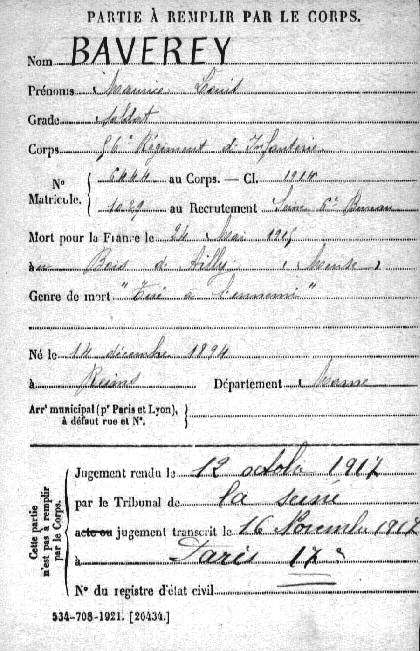 PARTIE À REMPLIR PAR LE CORPS.
Nom BAVEREY
Prénoms Maurice Louis
Grade Soldat
Corps 56e Régiment d'Infanterie
No Matricule. 6444 au Corps. — Cl. 1914
1029 au Recrutement Seine 6e Bureau
Mort pour la France le 24 Mai 1915
à au Bois d'Ailly (Meuse)
Genre de mort "Tué à l'ennemi"
Né le 14 décembre 1894
à Reims Département Marne
Arrt municipal (pr Paris et Lyon),
à défaut rue et No.
Cette partie n'est pas à remplir par le Corps.
Jugement rendu le 12 octobre 1917
par le Tribunal de la Seine
acte ou jugement transcrit le 16 Novembre 1917
à Paris 17e
No du registre d'état civil
534-708-1921. [26434.]